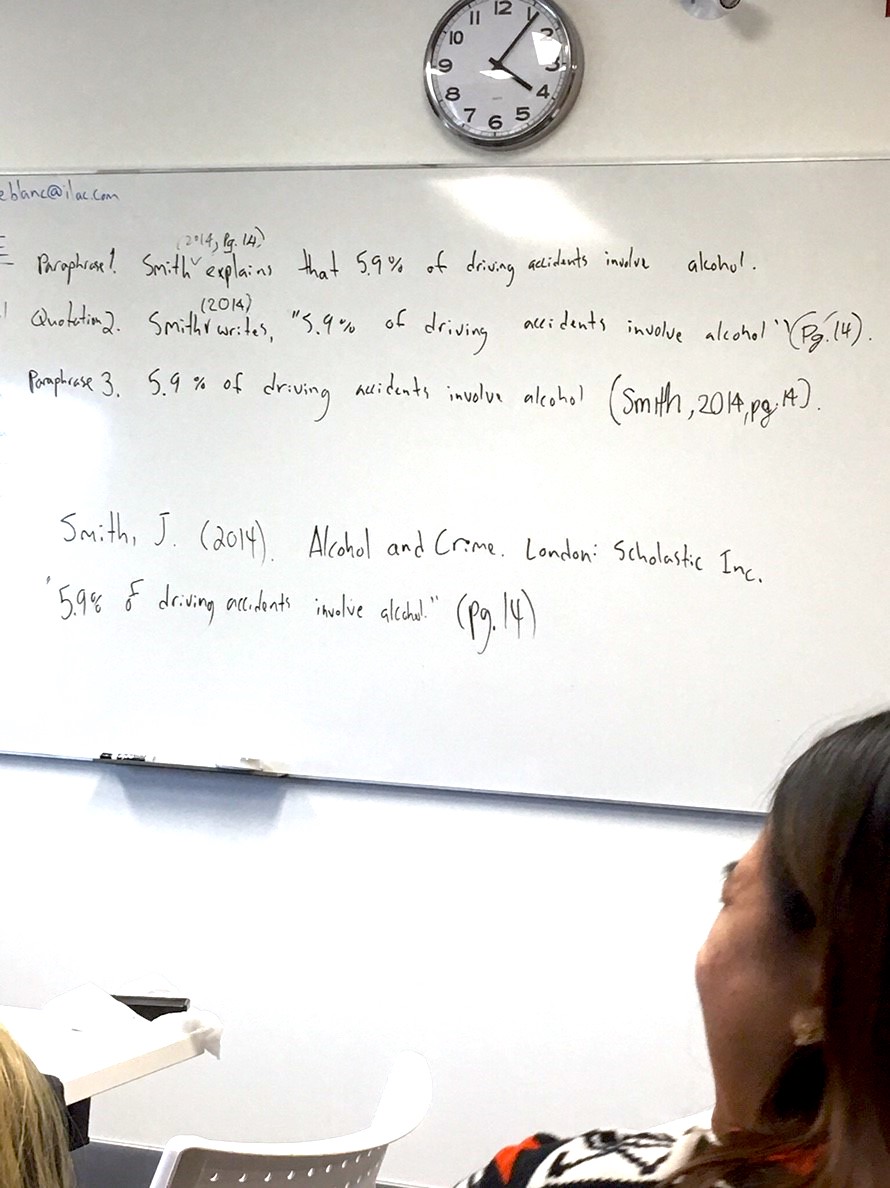 12
1
2
3
4
5
6
7
8
9
10
11
eblanc@ilac.com
(2014, Pg. 14)
Paraphrase 1. Smith ˅ explains that 5.9% of driving accidents involve alcohol.
(2014)
Quotation 2. Smith ˅ writes, "5.9% of driving accidents involve alcohol" (Pg. 14).
Paraphrase 3. 5.9% of driving accidents involve alcohol (Smith, 2014, pg. 14).
Smith, J. (2014). Alcohol and Crime. London: Scholastic Inc.
"5.9% of driving accidents involve alcohol." (pg. 14)